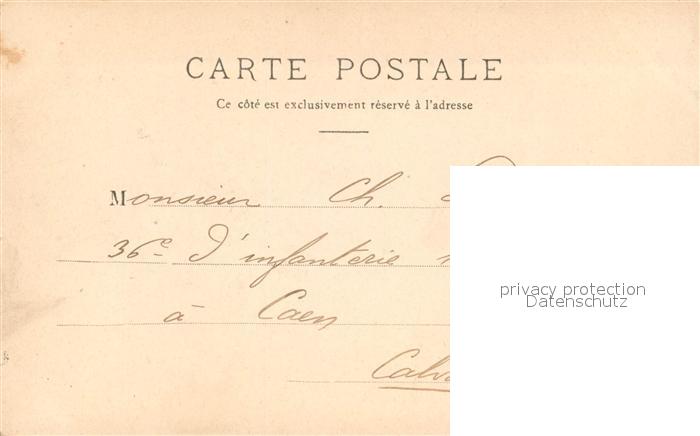 CARTE POSTALE
Ce côté est exclusivement réservé à l'adresse
Monsieur Ch.
36e d'infanterie
à Caen
privacy protection
Datenschutz